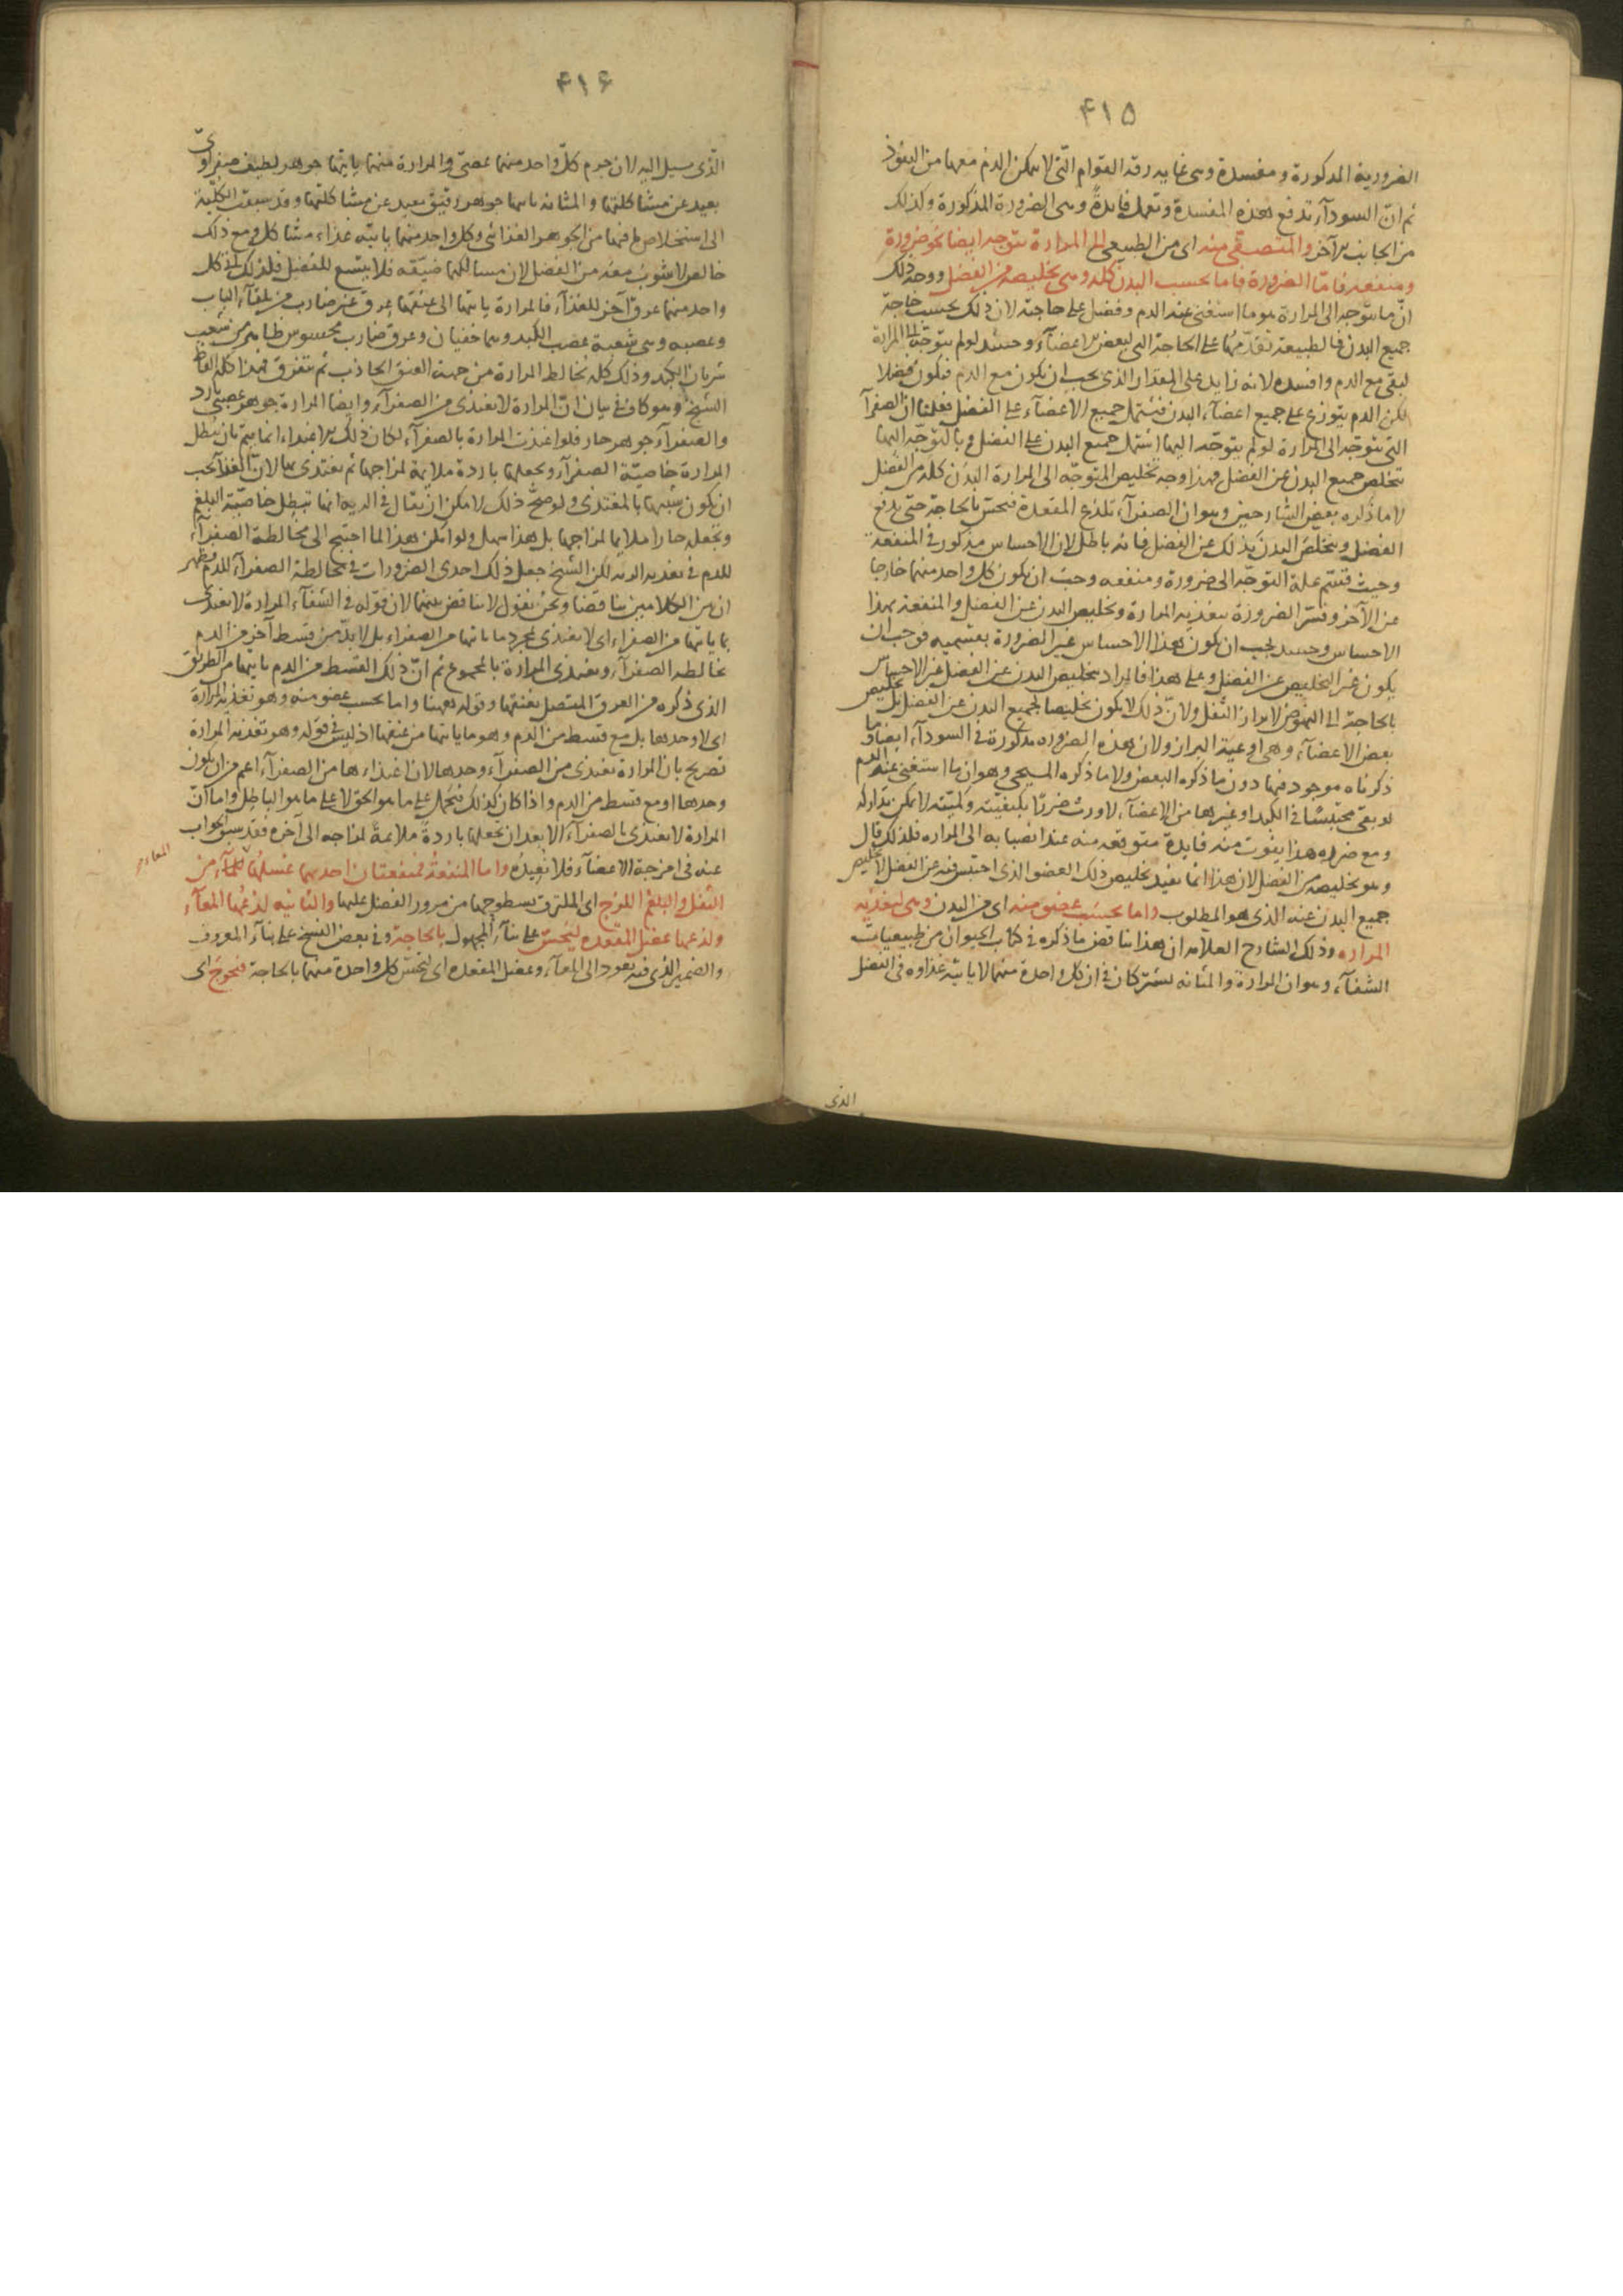 ۴۱۵
الضرورية المذكورة ومفسدة وهى غاية رقة القوام التى لا يمكن الدم معها من النفوذ
ثم ان السوداء تدفع هذه المفسدة وتعمل فايدةً وهى الضرورة المذكورة وكذلك
من الجانب الآخر والمتصفى منه اى من الطبيعى الى المرارة يتوجه ايضا نحو ضرورة
ومنفعة فامّا الضرورة فاما بحسب البدن كله وهى تخليصه من الفضل ووجه ذلك
انّ ما يتوجه الى المرارة هو ما استغنى عنه الدم وفضل على حاجته لان ذلك بحسب حاجة
جميع البدن فالطبيعة تقدّمها على الحاجة التى لبعض الاعضآء وحينئذ لو لم يتوجّه الى المرارة
لبقى مع الدم وافسده لانه زايد على المقدار الذى يجب ان يكون مع الدم فيكون فضلا
لكن الدم يتوزع على جميع اعضآء البدن فيشتمل جميع الاعضآء على الفضل فعلمنا ان الصفرآ
التى يتوجّه الى المرارة لو لم يتوجّه اليها اشتمل جميع البدن على الفضل وبالتوجّه اليها
يتخلص جميع البدن عن الفضل فهذا وجه تخليص المتوجّه الى المرارة البدن كله من الفضل
لا ما ذكره بعض الشارحين وهو ان الصفرآء تلذع المقعدة فتحسّ بالحاجة حتى يدفع
الفضل ويتخلّص البدن بذلك عن الفضل فانه باطل لان الاحساس مذكور فى المنفعة
وحيث قسّم علة التوجّه الى ضرورة ومنفعه وجب ان يكون كل واحد منهما خارجا
عن الآخر وفسّر الضرورة بتغذيه المرارة وتخليص البدن عن الفضل والمنفعة بهذا
الاحساس وحينئذ يجب ان يكون هذا الاحساس غير الضرورة بقسميه فوجب ان
يكون غير التخليص عن الفضل وعلى هذا فالمراد بتخليص البدن عن الفضل غير الاحساس
بالحاجة الى النهوض لابراز الثفل ولانّ ذلك لا يكون تخليصا لجميع البدن عن الفضل بل تخليص
بعض الاعضآء وهى اوعية البراز ولان هذه الضروره مذكورة فى السودآء ايضا وما
ذكرناه موجود فيها دون ما ذكره البعض ولا ما ذكره المسيحى وهو ان ما استغنى عنه الدم
لو بقى محتبسًا فى الكبد او غيرها من الاعضآء لاورث ضررًا بكيفيّته وكميّته لا يمكن تداركه
ومع ضرره هذا يفوت منه فايدة متوقعه منه عند انصبابه الى المراره فلذلك قال
وهو تخليصه من الفضل لان هذا انما يفيد تخليص ذلك العضو الذى احتبس فيه عن الفضل لا تخليص
جميع البدن عنه الذى هو المطلوب واما بحسب عضو منه اى من البدن وهى لتغذيه
المراره وذلك الشارح العلامه ان هذا يناقض ما ذكره فى كتاب الحيوان من طبيعيات
الشفآء وهو ان المرارة والمثانه يشتركان فى ان كل واحدة منهما لا ياتيه غذاوه فى الفضل
الذى
۴۱۶
الّذى يسيل اليه لان جرم كلّ واحد منهما عصبىّ والمرارة منهما ياتيها جوهر لطيف صفراوىّ
بعيد عن مشاكلتها والمثانه ياتيها جوهر رقيق بعيد عن مشاكلتها وقد سبقت الكلية
الى استخلاص ما فيها من الجوهر الغذائى وكل واحد منهما ياتيه غذاء مشاكل ومع ذلك
خالص لا يشوب معه من الفضل لان مسالكها ضيّقه فلا يتسع للفضل فلذلك اتى كل
واحد منهما عرق آخر للغذآء فالمرارة ياتيها الى عنقها عرق غير ضارب من تلقآء الباب
وعصبه وهى شعبة عصب الكبد وهما خفيان وعرق ضارب محسوس ظاهر من شعب
شريان الكبد وذلك كله تخالط المرارة من جهة العنق الجاذب ثم يتفرق فهذا كله الفاظ
الشيخ وهو كاف فى بيان انّ المرارة لا يغتذى من الصفرآء وايضا المرارة جوهر عصبىّ بارد
والصفرآء جوهر حار فلو اغتذت المرارة بالصفرآء لكان ذلك الاغتذاء انما يتمّ بان يبطل
المرارة خاصيّة الصفرآء ويجعلها باردة ملايمة لمزاجها ثم يغتذى بها لانّ الغذآء يجب
ان يكون شبيها بالمغتذى ولو صحّ ذلك لامكن ان يقال فى الريه انها تبطل خاصيّة البلغم
وتجعله حارا ملايما لمزاجها بل هذا سهل ولو امكن هذا لما احتيج الى مخالطة الصفرآء
للدم فى تغذيه الريه لكن الشيخ جعل ذلك احدى الضرورات فى مخالطة الصفرآء للدم فظهر
ان بين الكلامين تناقضا ونحن نقول لا تناقض بينهما لان قوله فى الشفآء المرارة لا يغتذى
بما ياتيها من الصفراء اى لا يغتذى بمجرد ما ياتيها من الصفراء بل لا بدّ من قسط آخر من الدم
تخالطه الصفرآء ويغتذى المرارة بالمجموع ثم انّ ذلك القسط من الدم ياتيها من الطريق
الذى ذكره من العرق المتصل بعنقها وقوله ههنا واما بحسب عضو منه وهو تغذيه المرارة
اى لا وحدها بل مع قسط من الدم وهو ما ياتيها من عنقها اذ ليس فى قوله وهو تغذيه المرارة
تصريح بان المرارة يغتذى من الصفرآء وحدها لان اغتذاءها من الصفرآء اعم من ان يكون
وحدها او مع قسط من الدم واذا كان كذلك فيحمل على ما هو الحق لا على ما هو الباطل واما انّ
المرارة لا يغتذى بالصفرآء الا بعد ان يجعلها باردةً ملايمةً لمزاجه الى آخره فقد سبق الجواب
عنه فى امزجة الاعضآء فلا نعيدُه واما المنفعةُ فمنفعتان احديهما غسلها المعاء من
الثفل والبلغم اللزج اى الملتزق بسطوحها من مرور الفضل عليها والثانيه لذعُها المعآء
ولذعها عضل المقعده ليُحَسّ على بنآء المجهول بالحاجة وفى بعض النسخ على بنآء المعروف
والضمير الذى فيه يعود الى المعآء وعضل المقعده اى ليحسّ كل واحدة منهما بالحاجة فيحوج الى